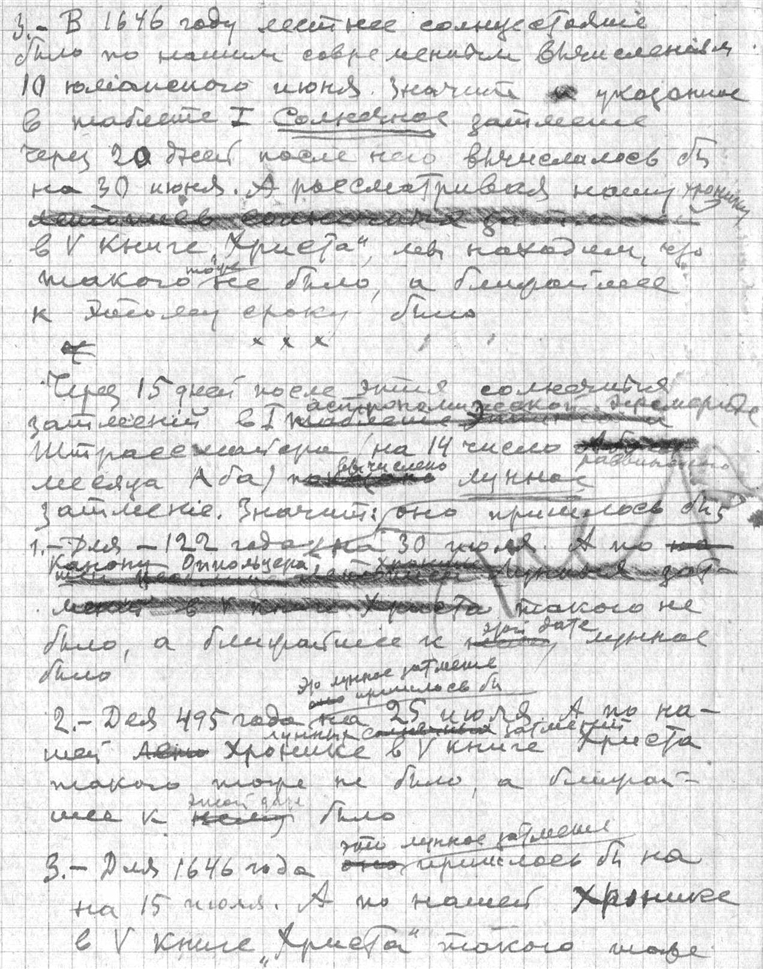 3.- В 1646 году летнее солнцестояние
было по нашим современным вычислениям
10 юлианского июня. Значит указанное
в таблете I Солнечное затмение
через 20 дней после него вычислялось бы
на 30 июня. А рассматривая нашу хронику
в V книге „Христа", мы находим, что
такого тоже не было, а ближайшее
к этому сроку было
х х х
Через 15 дней после этих солнечных
затмений в I астрономической эфемериде
Штрассмайера (на 14 число раввинского
месяца Аба) вычислено лунное
затмение. Значит: оно пришлось бы
1.- Для -122 года на 30 июля. А по
Канону Оппольцера такого не
было, а ближайшее к этой дате лунное
было
это лунное затмение пришлось бы
2.- Для 495 года на 25 июля. А по на-
лунных затмений
шей Хронике в V книге Христа
такого тоже не было, а ближай-
шее к этой дате было
3.- Для 1646 года это лунное затмение пришлось бы на
на 15 июля. А по нашей Хронике
в V книге „Христа" такого тоже